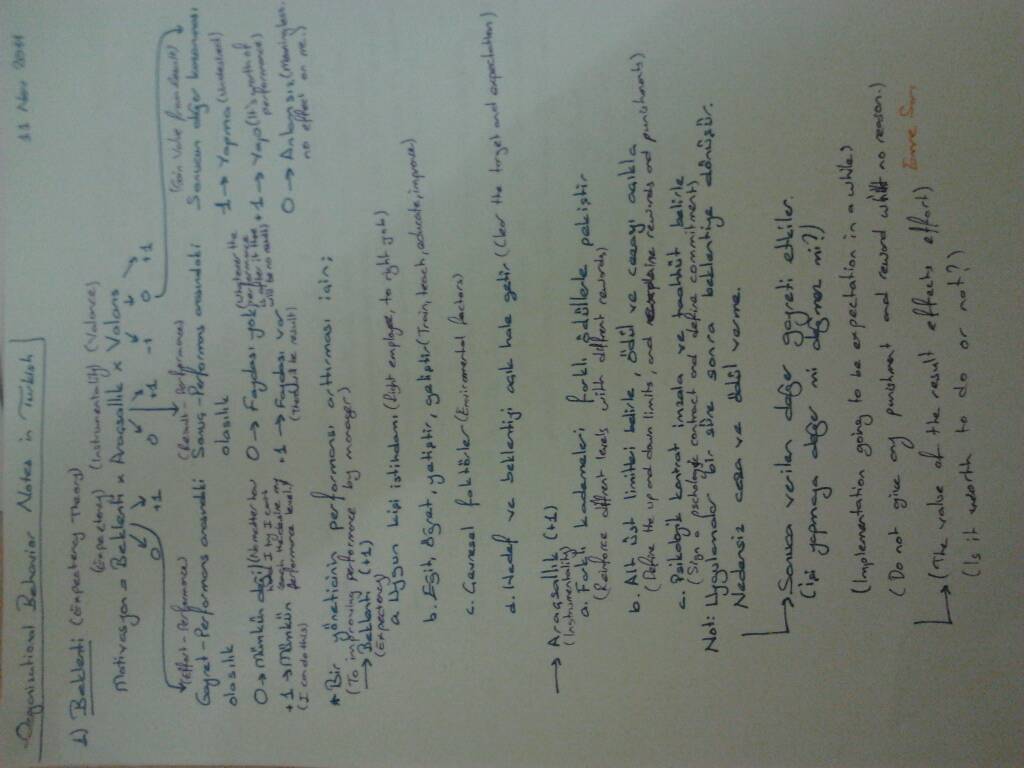 11 Nov 2011
Organizational Behavior Notes in Turkish
1) Beklenti (Expectency Theory)
(Expectency) (Instrumentality) (Valance)
Motivasyon = Beklenti x Araçsallık x Valans
0 +1 0 +1 -1 0 +1
(Effort-Performance) (Result-Performance) (Gain Value from Result)
Gayret-Performans arasındaki olasılık
Sonuç-Performans arasındaki olasılık
Sonucun değer kazanması
0 → Mümkün değil (No matter how hard I try I can't
performance level)
+1 → Mümkün
(I can do this)
0 → Faydası yok
+1 → Faydası var
(There'll be result)
-1 → Yapma (Undesired)
+1 → Yap (It's worth of performance)
0 → Anlamsız (Meaningless, no effect on me.)
* Bir yöneticinin performansı arttırması için;
(To improving performance by manager)
→ Beklenti (+1)
(Expectency)
a. Uygun kişi istihdam (Right employee, to right job)
b. Eğit, öğret, yetiştir, geliştir (Train, teach, educate, improve)
c. Çevresel faktörler (Enviromental factors)
d. Hedef ve beklentiyi açık hale getir (Clear the target and expectation)
→ Araçsallık (+1)
(Instrumentality)
a. Farklı kademeleri farklı ödüllerle pekiştir
(Reinforce diffrent levels with diffrent rewards)
b. Alt üst limitleri belirle, ödül ve cezayı açıkla
(Define the up and down limits, and explaine rewards and punishments)
c. Psikolojik kontrat imzala ve taahhüt belirle
(Sign a psychologic contract and define commitments)
Not: Uygulamalar bir süre sonra beklentiye dönüşür.
Nedensiz ceza ve ödül verme.
→ Sonuca verilen değer gayreti etkiler.
(İşi yapmaya değer mi değmez mi?)
(Implementation going to be expectation in a while)
(Do not give any punishment and reward with no reason.)
→ (The value of the result effects effort)
(Is it worth to do or not?)